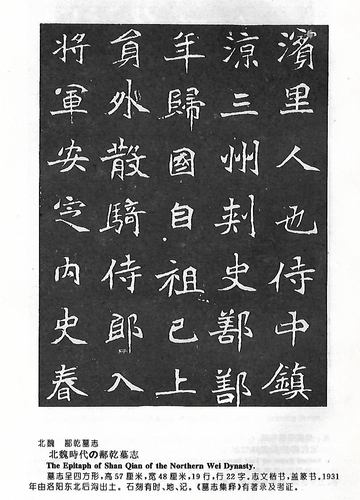 濱里人也侍中鎮
涼三州刾史鄯鄯
年歸國自祖已上
員外散騎侍郎入
將軍安定内史春
北魏 鄯乾墓志
北魏時代の鄯乾墓志
The Epitaph of Shan Qian of the Northern Wei Dynasty.
墓志呈四方形，高57厘米，宽48厘米，19行，行22字。志文楷书，盖篆书。1931
年由洛阳东北后沟出土。石刻有时、地、记。《墓志集释》有著录及考证。